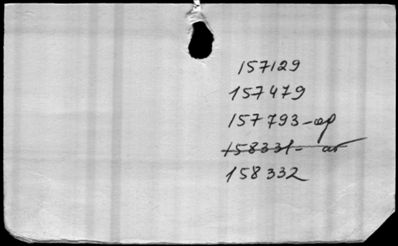 157129
157479
157793-ар
158331-ав
158332